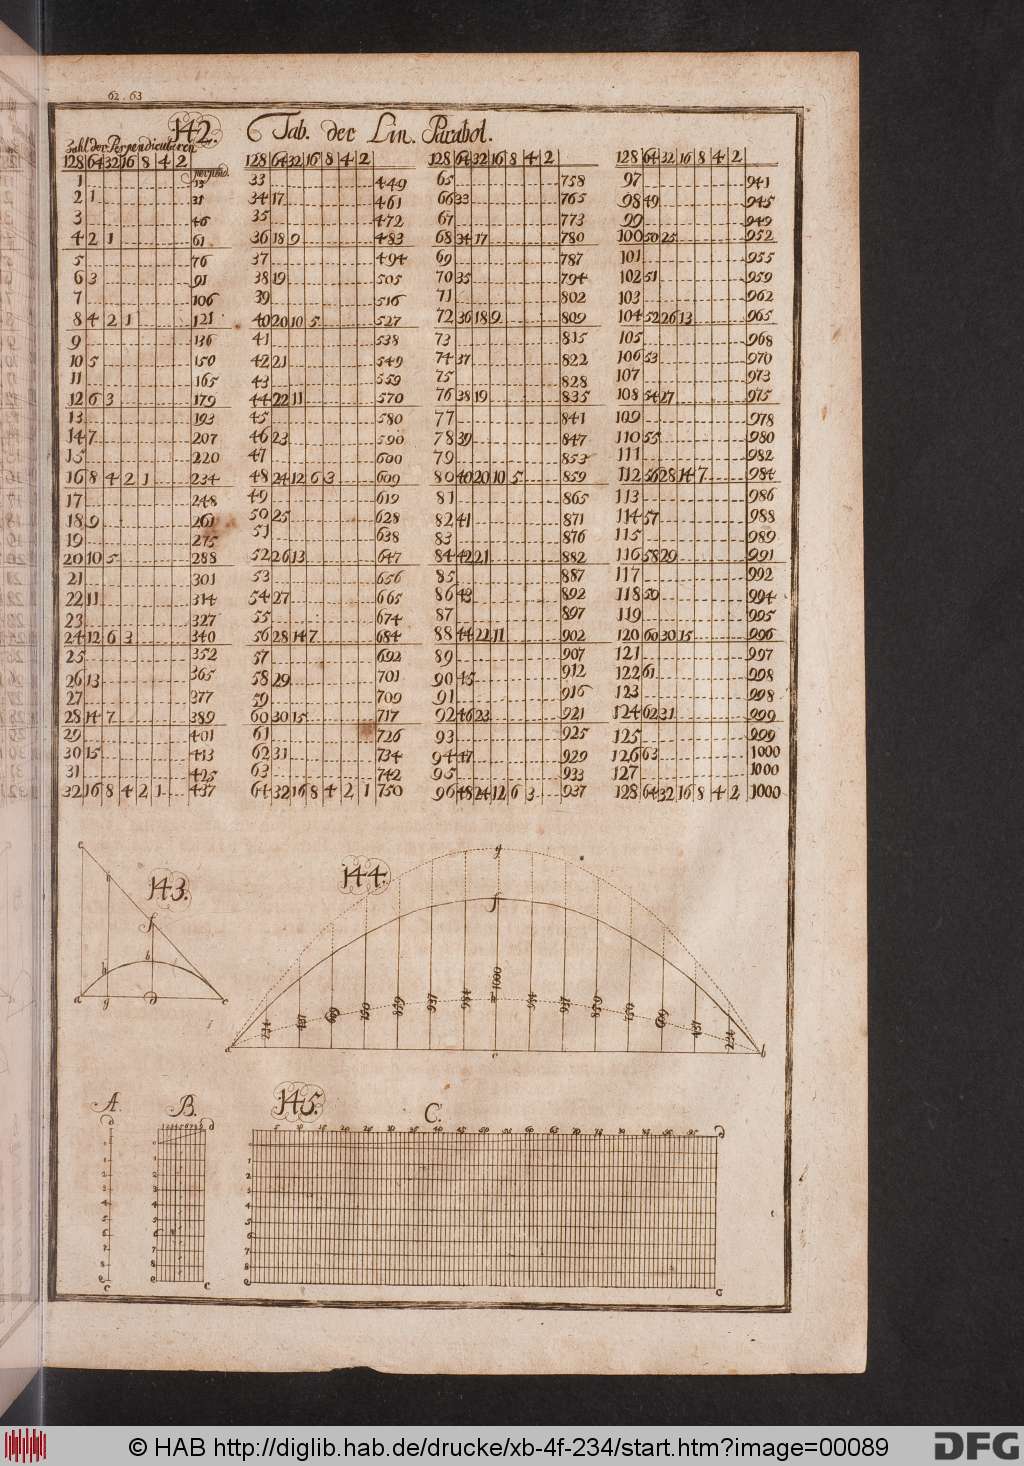 62 . 63
142. Tab. der Lin. Parabol.
Zahl der Perpendicularen
128 64 32 16 8 4 2
1 13
2 1 31
3 46
4 2 1 61
5 76
6 3 91
7 106
8 4 2 1 121
9 136
10 5 150
11 165
12 6 3 179
13 193
14 7 207
15 220
16 8 4 2 1 234
17 248
18 9 261
19 275
20 10 5 288
21 301
22 11 314
23 327
24 12 6 3 340
25 352
26 13 365
27 377
28 14 7 389
29 401
30 15 413
31 425
32 16 8 4 2 1 437
128 64 32 16 8 4 2
33 449
34 17 461
35 472
36 18 9 483
37 494
38 19 505
39 516
40 20 10 5 527
41 538
42 21 549
43 559
44 22 11 570
45 580
46 23 590
47 600
48 24 12 6 3 609
49 619
50 25 628
51 638
52 26 13 647
53 656
54 27 665
55 674
56 28 14 7 684
57 692
58 29 701
59 709
60 30 15 717
61 726
62 31 734
63 742
64 32 16 8 4 2 1 750
128 64 32 16 8 4 2
65 758
66 33 765
67 773
68 34 17 780
69 787
70 35 794
71 802
72 36 18 9 809
73 815
74 37 822
75 828
76 38 19 835
77 841
78 39 847
79 853
80 40 20 10 5 859
81 865
82 41 871
83 876
84 42 21 882
85 887
86 43 892
87 897
88 44 22 11 902
89 907
90 45 912
91 916
92 46 23 921
93 925
94 47 929
95 933
96 48 24 12 6 3 937
128 64 32 16 8 4 2
97 941
98 49 945
99 949
100 50 25 952
101 955
102 51 959
103 962
104 52 26 13 965
105 968
106 53 970
107 973
108 54 27 975
109 978
110 55 980
111 982
112 56 28 14 7 984
113 986
114 57 988
115 989
116 58 29 991
117 992
118 59 994
119 995
120 60 30 15 996
121 997
122 61 998
123 998
124 62 31 999
125 999
126 63 1000
127 1000
128 64 32 16 8 4 2 1000
143.
f
h b
a g d c
144.
g
f
234 437 609 750 859 937 984 = 1000 984 937 859 750 609 437 234
a e b
145.
A.
d
1
2
3
4
5
6
7
8
c
B.
1 2 3 4 5 6 7 8 9 d
0
1
2
3
4
5
6
7
8
9
c
C.
5 10 15 20 25 30 35 40 45 50 55 60 65 70 75 80 85 90 95 d
1
2
3
4
5
6
7
8
9
c
© HAB http://diglib.hab.de/drucke/xb-4f-234/start.htm?image=00089
DFG